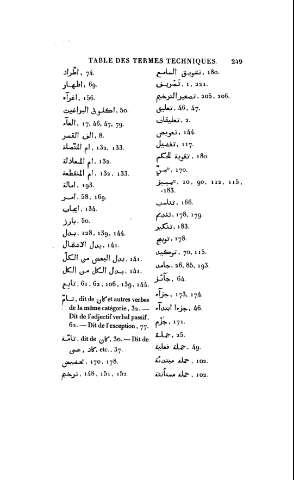 TABLE DES TERMES TECHNIQUES. 249
اطّراد, 74.
اظهار, 69.
اغراء, 156.
اكلونى البراغيث, 50.
الغاء, 17, 46, 47, 79.
الف القصر, 8.
ام المتّصلة, 132, 133.
ام المعادلة, 132.
ام المنقطعة, 132, 133.
امالة, 193.
امر, 58, 169.
ايجاب, 134.
بارز, 30.
بدل, 128, 139, 144.
بدل الاشتمال, 141.
بدل البعض من الكلّ, 141.
بدل الكل من الكل, 141.
تابع, 61, 62, 106, 139, 144.
تامّ, dit de كان et autres verbes
de la même catégorie, 32. —
Dit de l'adjectif verbal passif,
62. — Dit de l'exception, 77.
تامّة, dit de كان, 30. — Dit de
كاد, عسى, etc., 37.
تخصيص, 170, 178.
ترخيم, 148, 151, 152
تشويق السامع, 180.
تصغير الترخيم, 205, 206.
تعليق, 46, 47.
تعليقات, 2.
تعويض, 144.
تفضيل, 117.
تقوية للحكم, 180
170.
تمييز, 20, 90, 112, 115,
183.
تناسب, 166.
تقديم, 178, 179.
تذكير, 183.
178.
توكيد, 70, 115.
جامد, 26, 85, 193
جائز, 64.
جزاء, 173, 174.
46.
جزم, 171.
جملة, 25.
جملة فعلية, 49.
جملة مبتدئة, 102.
جملة مستأنفة, 102.